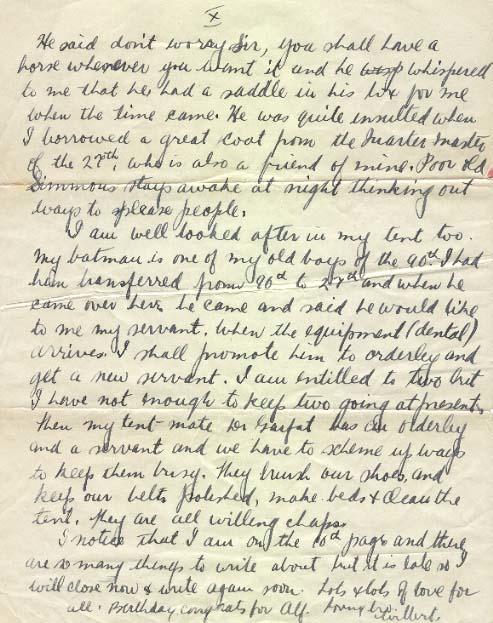 X
He said don't worry Sir, you shall have a
horse whenever you want it and he whispered
to me that he had a saddle in his box for me
when the time came. He was quite insulted when
I borrowed a great coat from the Quarter Master
of the 27th, who is also a friend of mine. Poor old
Simmons stays awake at night thinking out
ways to please people.
I am well looked after in my tent too.
My batman is one of my old boys of the 90th I had
him transferred from 90th to and when he
came over here he came and said he would like
to me my servant. When the equipment (dental)
arrives I shall promote him to orderley and
get a new servant. I am entilled to two but
I have not enough to keep two going at present.
Then my tent-mate Dr has an orderley
and a servant and we have to scheme up ways
to keep them busy. They brush our shoes, and
keep our belts polished, make beds & clean the
tent. They are all willing chaps.
I notice that I am on the 10th page and there
are so many things to write about but it is late so I
will close now & write again soon. Lots & lots of love for
all. Birthday congrats for Alf. Loving bro.
Wilbert.